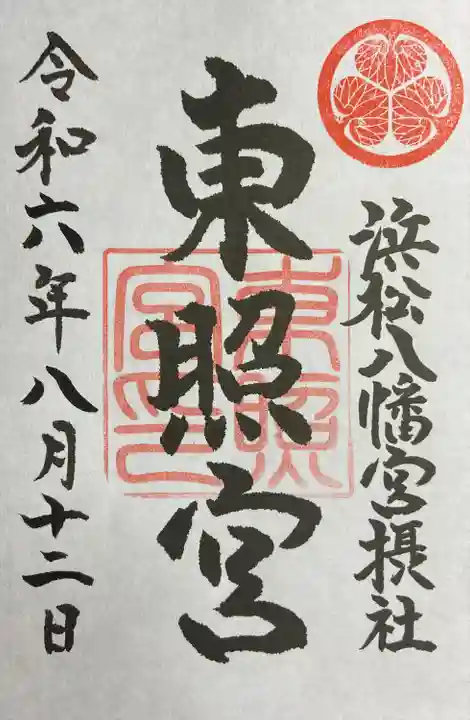 浜松八幡宮摂社
東照宮
東照宮印
令和六年八月十二日